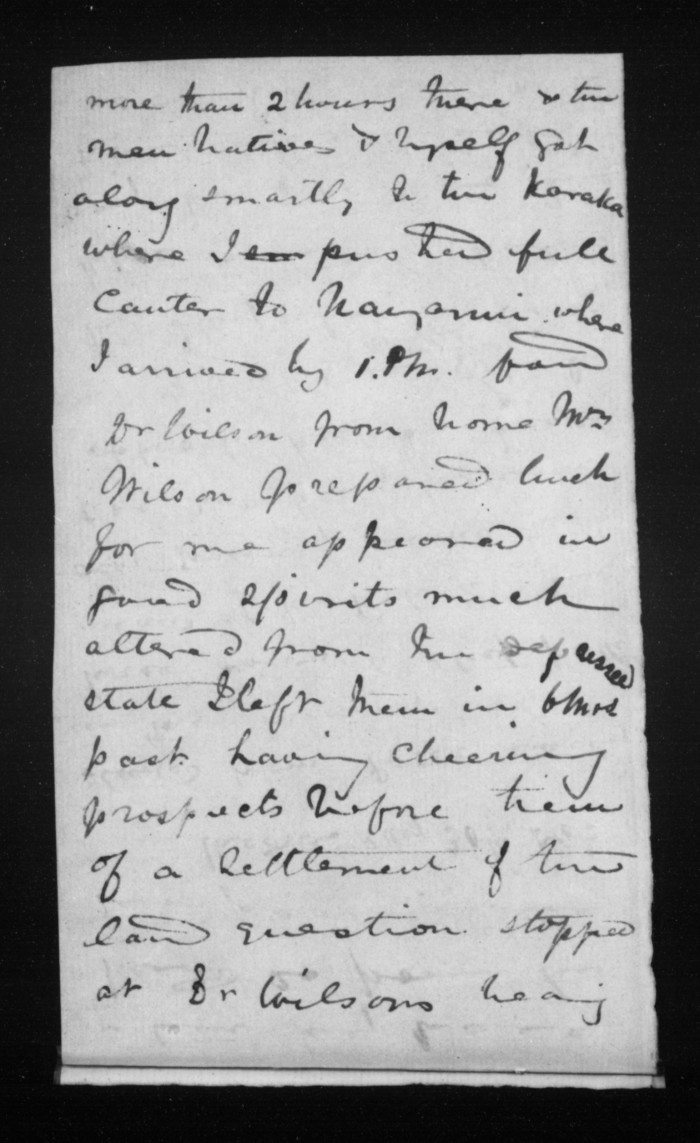 more than 2 hours there & the
men Natives & myself got
along smartly to the Karaka
where I pushed full
Canter to Wanganui where
I arrived by 1.PM. found
Dr Wilson from home Mrs
Wilson prepared lunch
for me appeared in
good spirits much
altered from the depressed
state I left them in 6 Mos
past having cheering
prospects before them
of a Settlement of the
land question stopped
at Dr Wilsons